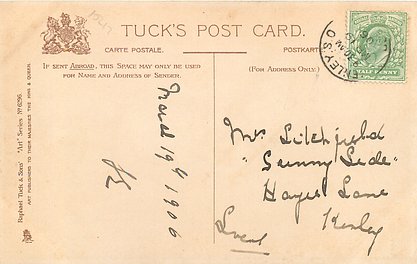 TUCK'S POST CARD.
CARTE POSTALE.
POSTKARTE
IF SENT ABROAD, THIS SPACE MAY ONLY BE USED
FOR NAME AND ADDRESS OF SENDER.
(FOR ADDRESS ONLY.)
HALF PENNY
Raphael Tuck & Sons' "Art" Series No 6296.
ART PUBLISHERS TO THEIR MAJESTIES THE KING & QUEEN.
19th 1906
Mrs Litchfield
"Sunny Side"
Hayes Lane
Kenley
Local